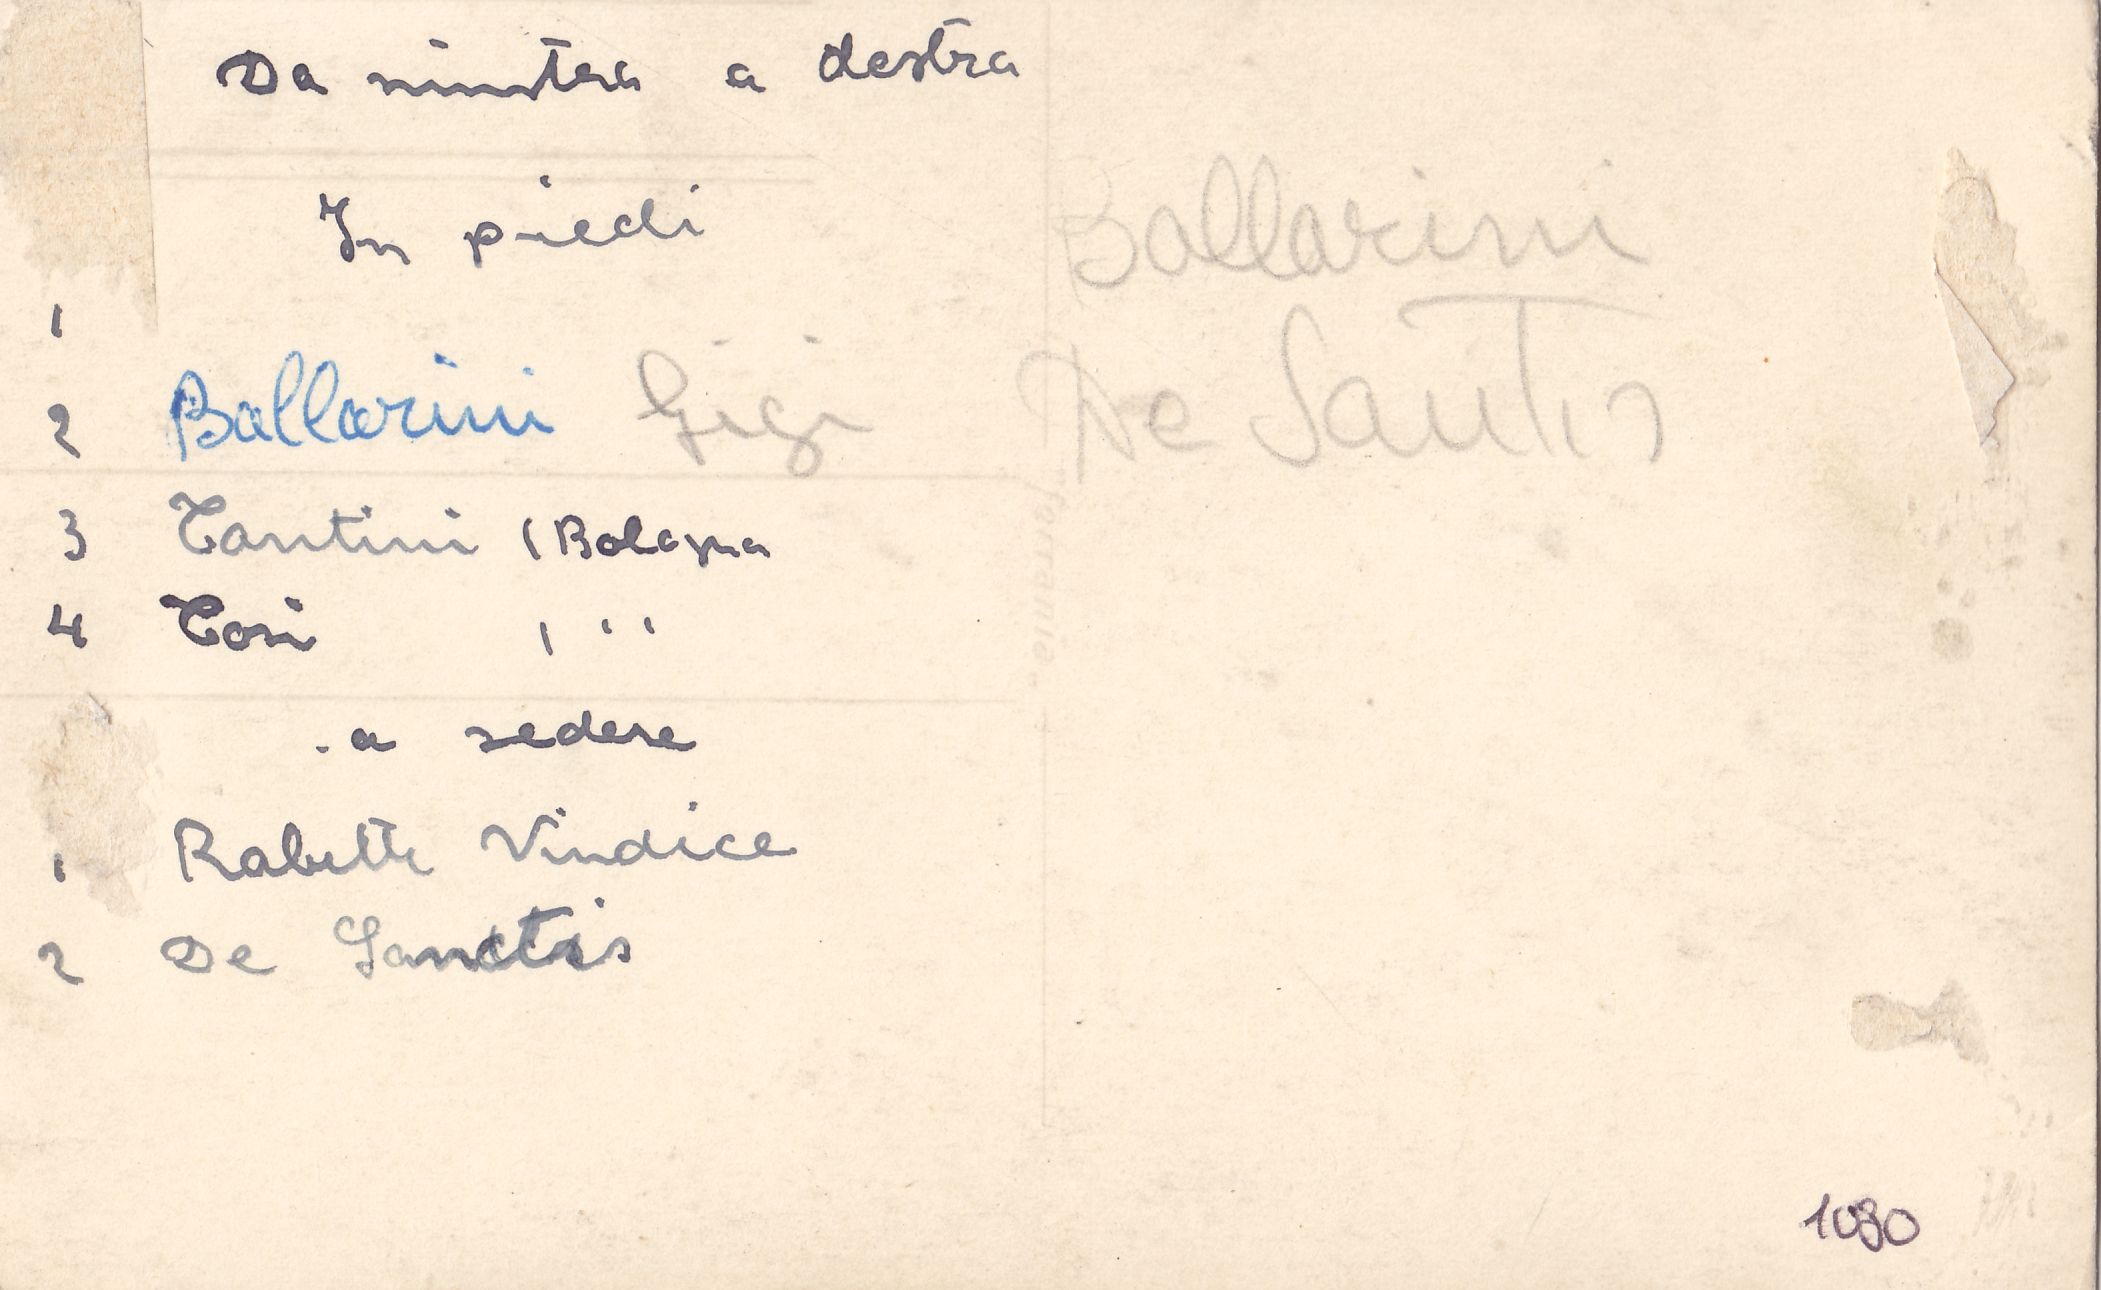 Da sinistra a destra
In piedi
1
2 Ballarini Gigi
3 Tantini (Bologna
4 Tosi ( ' '
. a sedere
1 Rabetti Vindice
2 De Sanctis
Ballarini
De Santis
Ferrania
1090